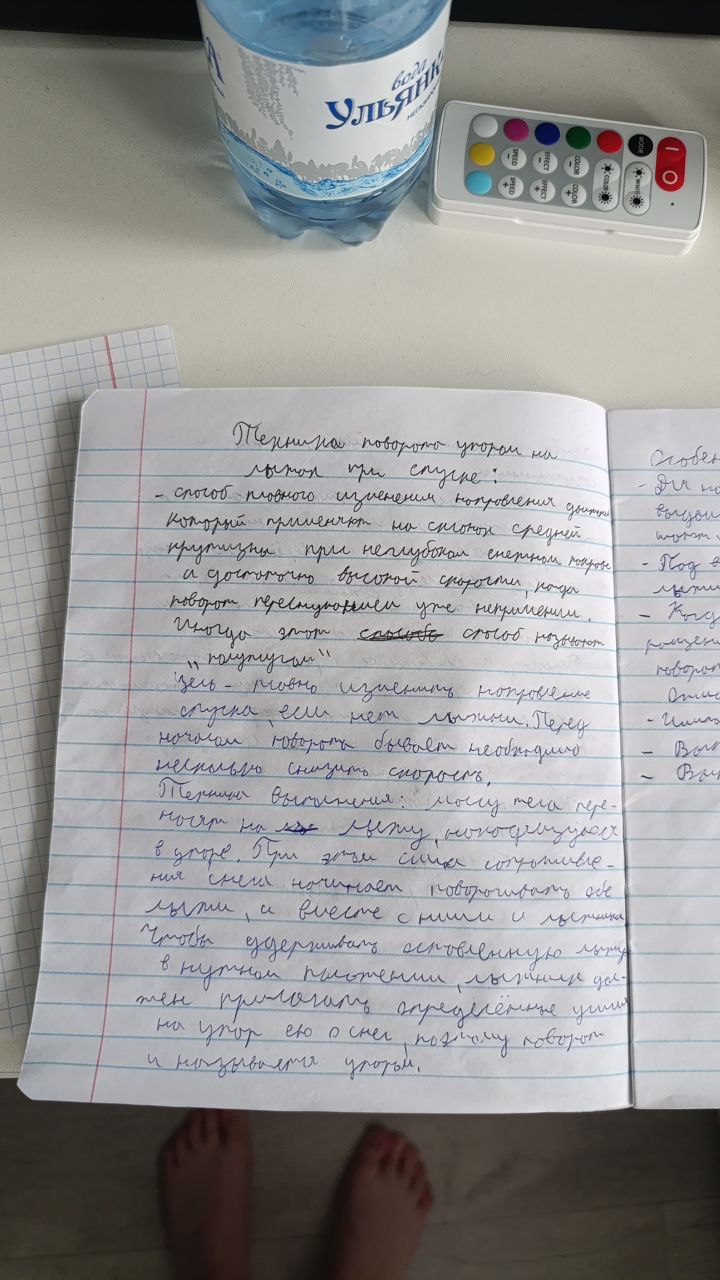 вода
УЛЬЯНК
I
O
MODE
WHITE
COLOR
SPEED -
EFFECT -
COLOR -
SPEED +
EFFECT +
COLOR +
Техника поворота упором на
лыжах при спуске:
- способ плавного изменения направления движения
который применяют на склонах средней
крутизны при неглубоком снежном покрове
и достаточно высокой скорости, когда
поворот переступанием уже неприменим.
Иногда этот способ называют
„полуплугом"
Цель - плавно изменить направление
спуска, если нет лыжни. Перед
началом поворота бывает необходимо
несколько снизить скорость.
Техника выполнения: массу тела пере-
носят на лыжу, находящуюся
в упоре. При этом сила сопротивле-
ния снега начинает поворачивать обе
лыжи, а вместе с ними и лыжника
Чтобы удерживать оставленную лыжу
в нужном положении, лыжник дол-
жен прилагать определённые усилия
на упор ею о снег, поэтому поворот
и называется упором.
Особен
- Для по
- Под в
лыжи
- Когда
поворот
- Вып
- Вып